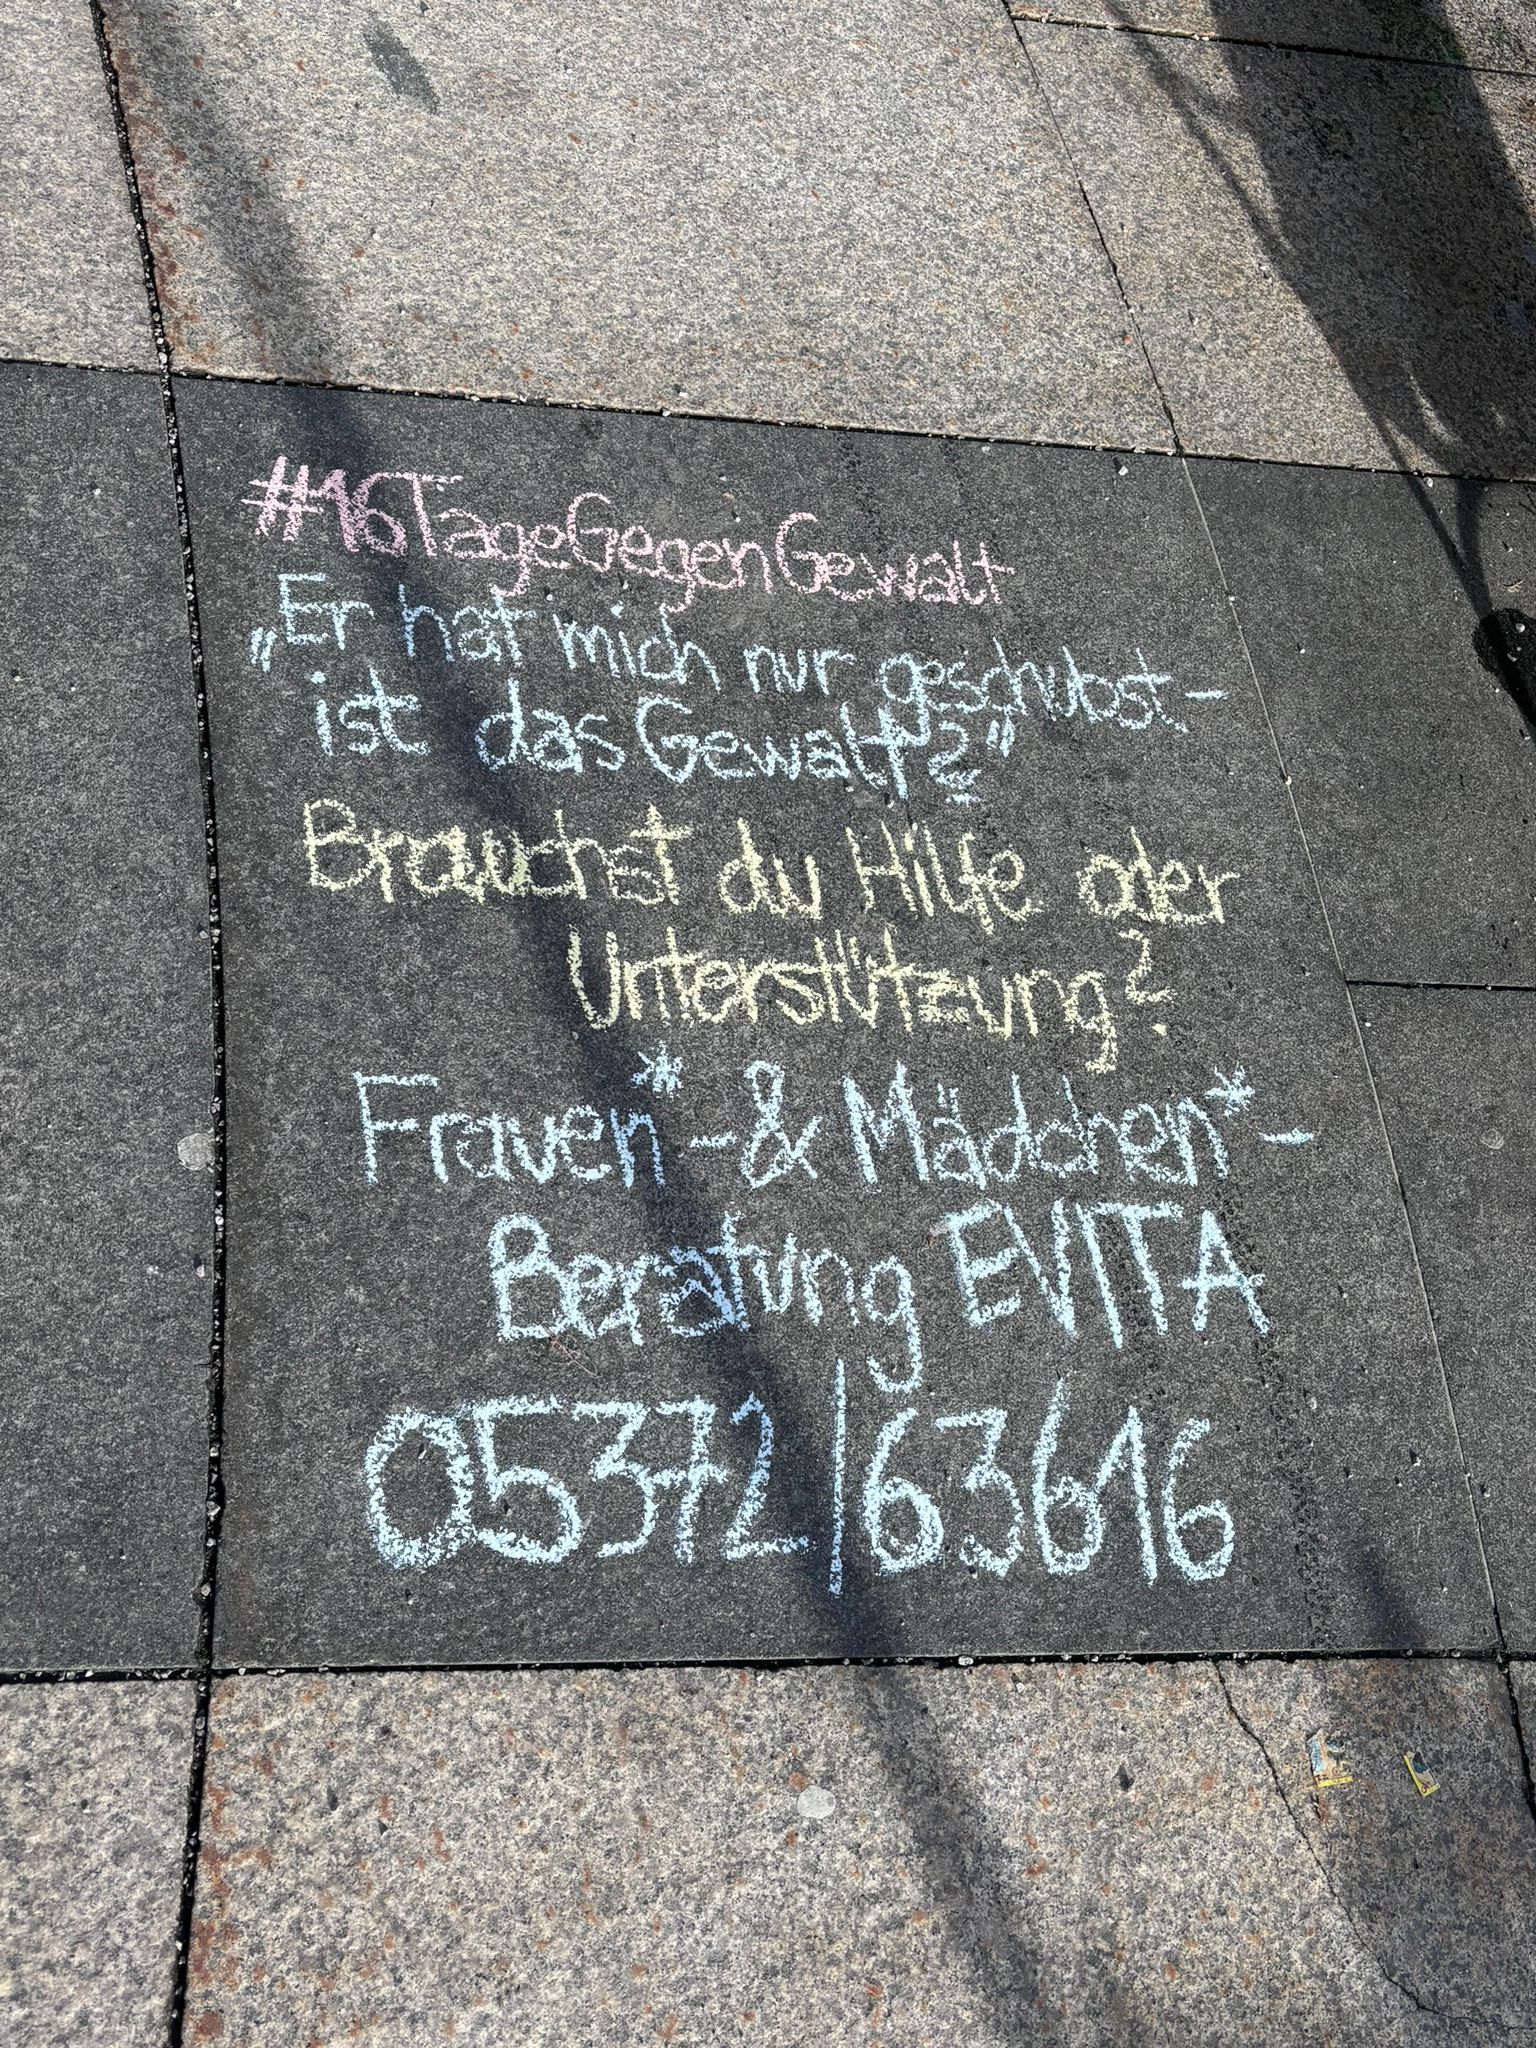 #16TageGegenGewalt
„Er hat mich nur geschubst -
ist das Gewalt?"
Brauchst du Hilfe oder
Unterstützung?
Frauen*-& Mädchen*-
Beratung EVITA
05372/63616